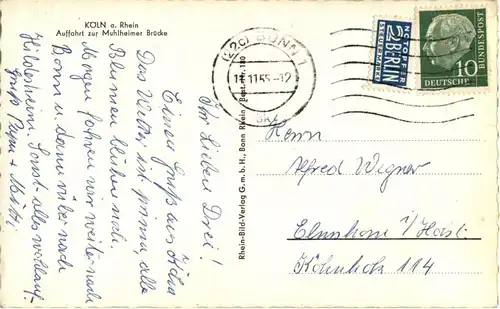 KÖLN a. Rhein
Auffahrt zur Mühlheimer Brücke
Ihr Lieben Drei!
Einen Gruß aus Köln
Das Wetter ist prima, alle
Blumen blühen noch
Morgen fahren wir weiter nach
Bonn u dann rüber nach
Hildesheim. Sonst alles wohlauf.
Gruß Papa + Mutti
Rhein-Bild-Verlag G. m. b. H., Bonn Rhein, Best.-Nr. 180
(22c) BONN 1
11.11.55-12
NOTOPFER
2 BERLIN
STEUERMARKE
10
DEUTSCHE
BUNDESPOST
Herrn
Alfred Wegner
Elmshorn i/Holst.
Köhnholz 114